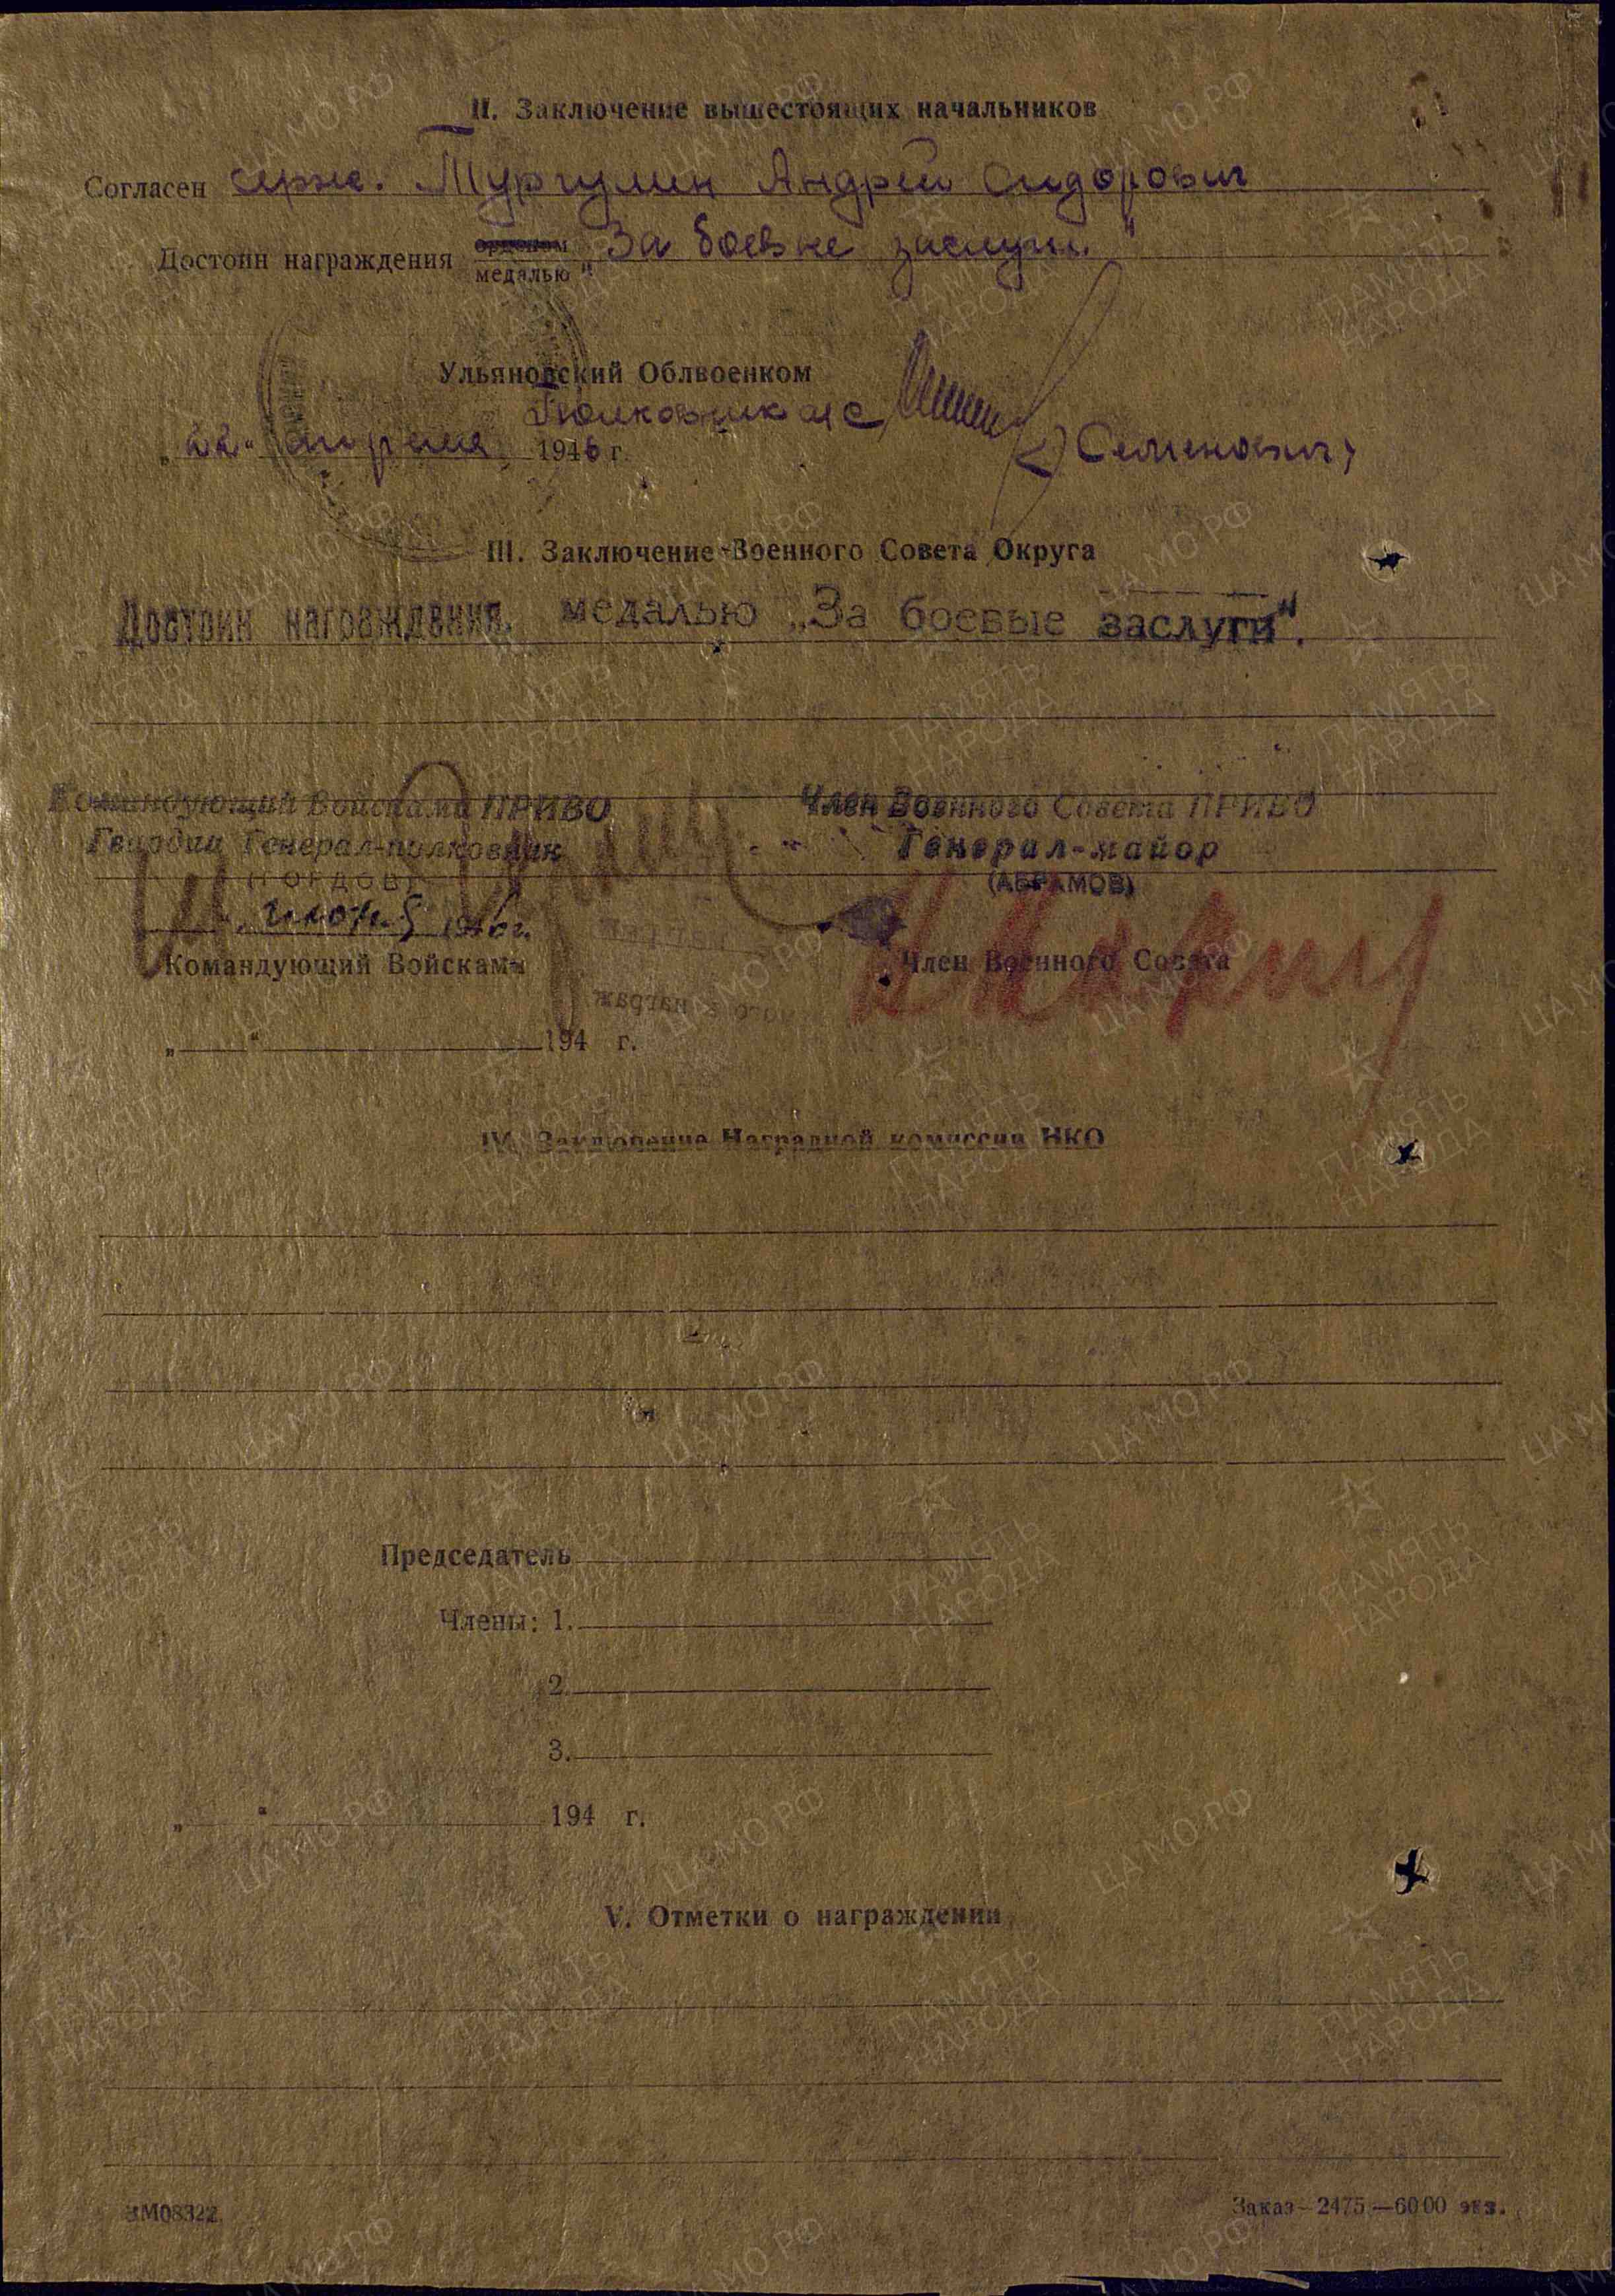 II. Заключение вышестоящих начальников
Согласен серж. Тургулин Андрей Сидорович
Достоин награждения орденом медалью "За боевые заслуги"
Ульяновский Облвоенком
Полковник м/с
"22" апреля 1946 г. (Семенович)
III. Заключение Военного Совета Округа
Достоин награждения медалью „За боевые заслуги".
Командующий Войсками ПРИВО Член Военного Совета ПРИВО
Гвардии Генерал-полковник Генерал-майор
(АБРАМОВ)
1946 г.
Командующий Войсками Член Военного Совета
„ “ 194 г.
IV. Заключение Наградной комиссии НКО
Председатель
Члены: 1.
2.
3.
„ “ 194 г.
V. Отметки о награждении
ЗМ08322. Заказ—2475—6000 экз.
ПАМЯТЬ НАРОДА
ЦАМО.РФ